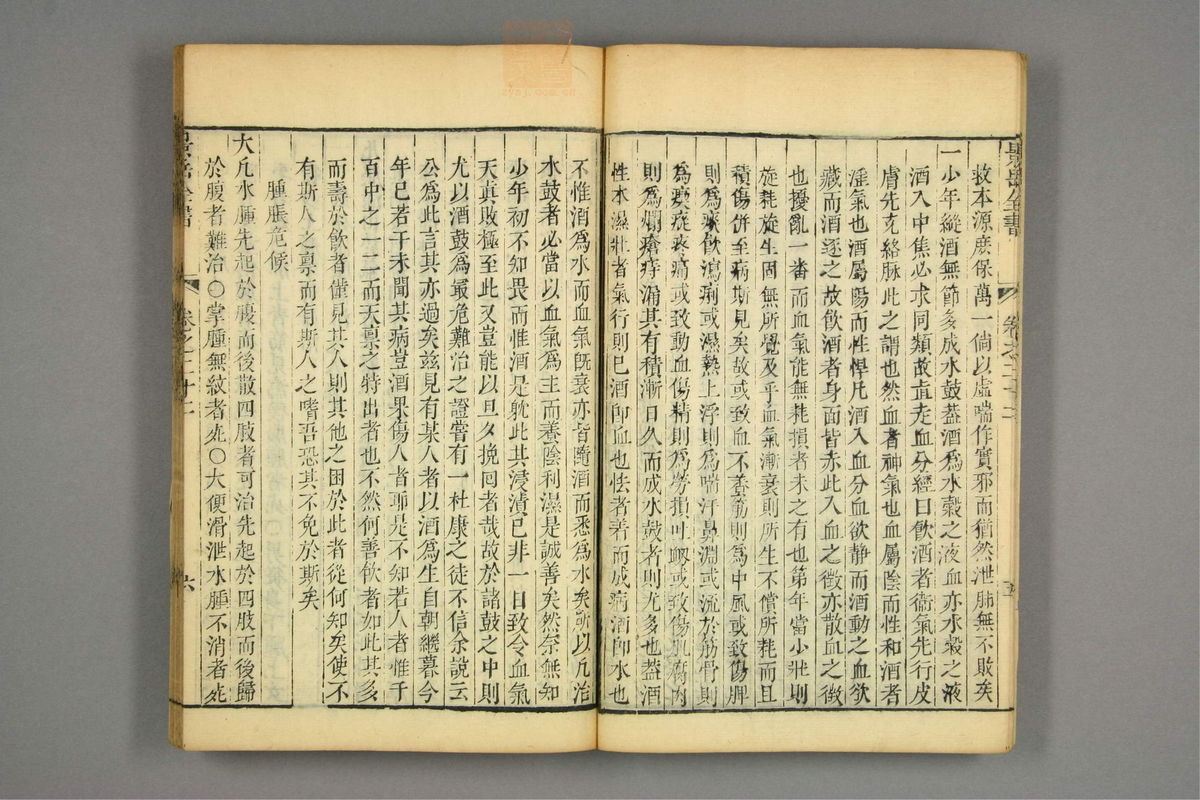 救本源庶保萬一倘以虛喘作實邪而猶然泄肺無不敗矣
一少年縱酒無節多成水鼓蓋酒爲水穀之液血亦水穀之液
酒入中焦必求同類故直走血分經曰飲酒者衞氣先行皮
膚先充絡脉此之謂也然血者神氣也血屬陰而性和酒者
淫氣也酒屬陽而性悍凡酒入血分血欲静而酒動之血欲
藏而酒逐之故飲酒者身面皆赤此入血之徵亦散血之徵
也擾亂一番而血氣能無耗損者未之有也第年當少壯則
旋耗旋生固無所覺及乎血氣漸衰則所生不償所耗而且
積傷併至病斯見矣故或致血不養筋則爲中風或致傷脾
則爲痰飲瀉痢或濕熱上浮則爲喘汗鼻淵或流於筋骨則
爲瘈瘲疼痛或致動血傷精則爲勞損吐衂或致傷肌腐肉
則爲爛瘡痔漏其有積漸日久而成水鼓者則尤多也蓋酒
性本濕壯者氣行則已酒卽血也怯者着而成病酒卽水也
不惟酒爲水而血氣旣衰亦皆隨酒而悉爲水矣所以凡治
水鼓者必當以血氣爲主而養陰利濕是誠善矣然奈無知
少年初不知畏而惟酒是躭此其浸漬已非一日致令血氣
天真敗極至此又豈能以旦夕挽囘者哉故於諸鼓之中則
尤以酒鼓爲最危難治之證嘗有一杜康之徒不信余說云
公爲此言其亦過矣兹見有某人者以酒爲生自朝繼暮今
年已若干未聞其病豈酒果傷人者耶是不知若人者惟千
百中之一二而天禀之特出者也不然何善飲者如此其多
而壽於飲者僅見其人則其他之困於此者從何知矣使不
有斯人之禀而有斯人之嗜吾恐其不免於斯矣
腫脹危候
大凡水腫先起於腹而後散四肢者可治先起於四肢而後歸
於腹者難治○掌腫無紋者死○大便滑泄水腫不消者死
景岳全書
卷之二十二
六